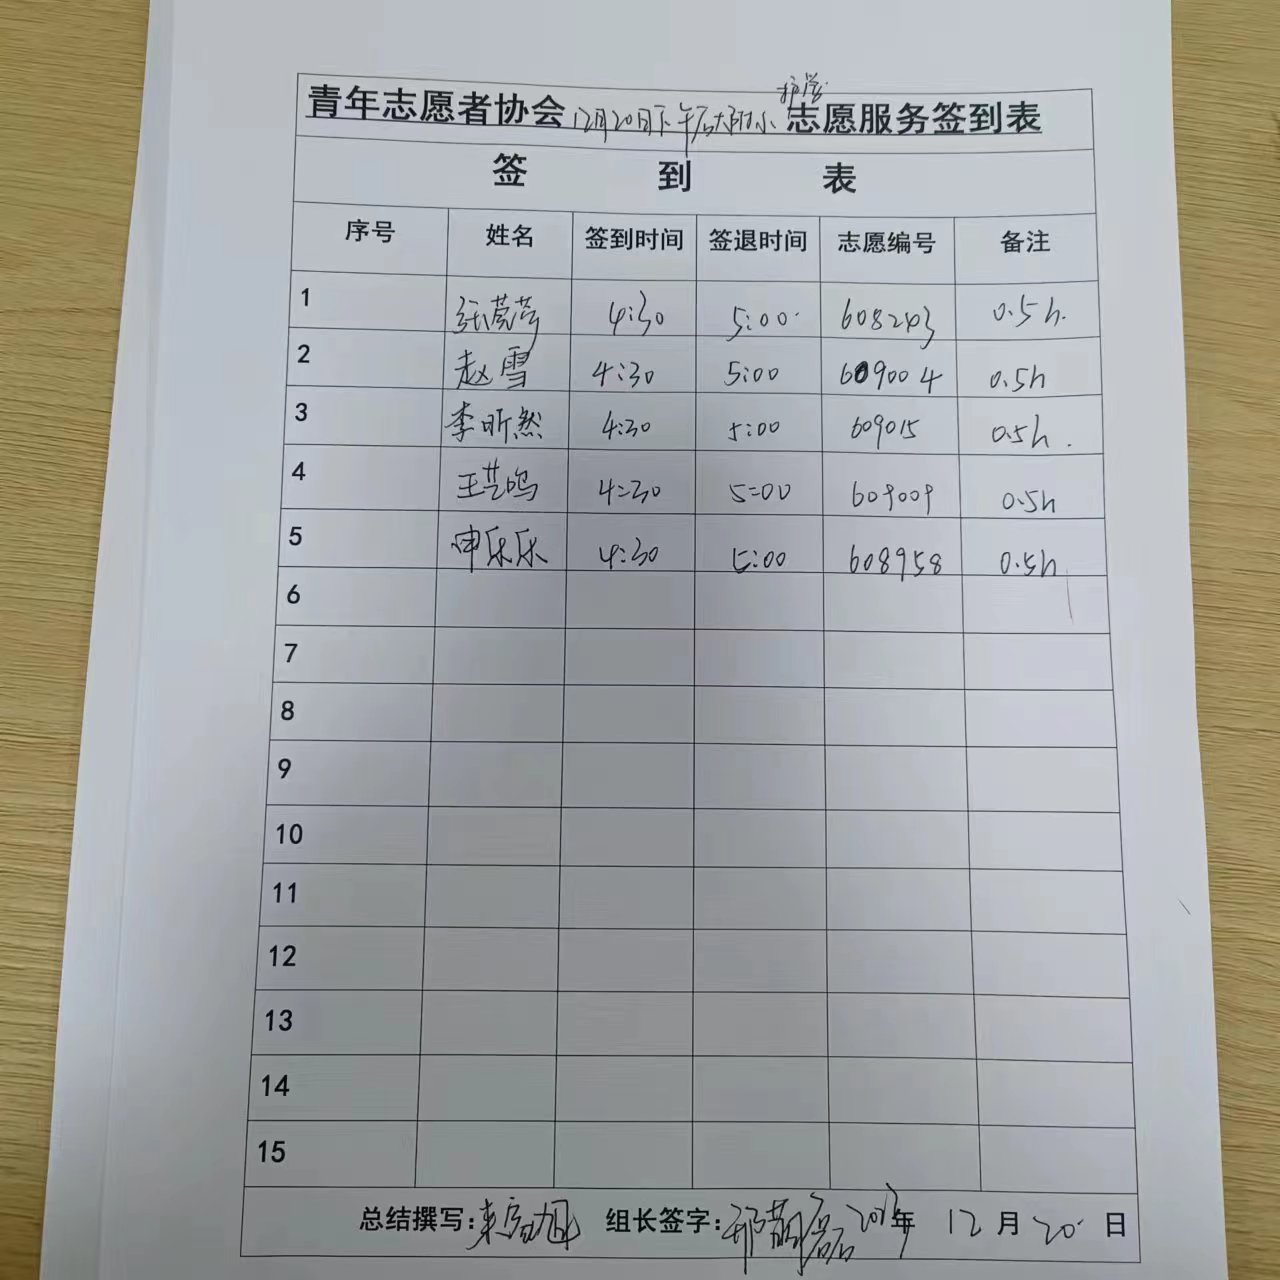 护学
青年志愿者协会12月20日下午石大附小志愿服务签到表
签 到 表
序号 姓名 签到时间 签退时间 志愿编号 备注
1 张芸芸 4:30 5:00 608243 0.5h.
2 赵雪 4:30 5:00 609004 0.5h
3 李昕然 4:30 5:00 609015 0.5h.
4 王艺鸣 4:30 5:00 609009 0.5h
5 申乐乐 4:30 5:00 608958 0.5h
6
7
8
9
10
11
12
13
14
15
总结撰写: 组长签字: 2023年 12月20日